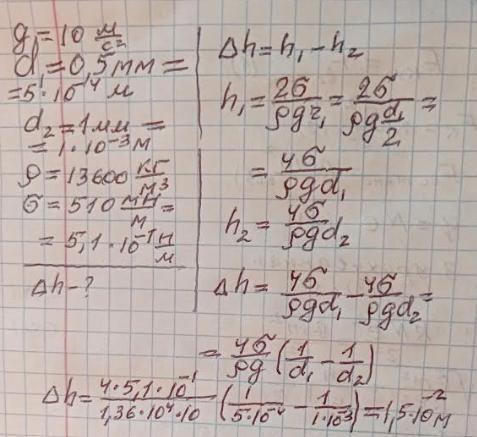 g = 10 м/с²
d₁ = 0,5 мм =
= 5·10⁻⁴ м
d₂ = 1 мм =
= 1·10⁻³ м
ρ = 13600 кг/м³
σ = 510 мН/м =
= 5,1·10⁻¹ Н/м
Δh - ?
Δh = h₁ - h₂
h₁ = 2σ/ρgr₁ = 2σ/ρg(d₁/2) =
= 4σ/ρgd₁
h₂ = 4σ/ρgd₂
Δh = 4σ/ρgd₁ - 4σ/ρgd₂ =
= 4σ/ρg (1/d₁ - 1/d₂)
Δh = 4·5,1·10⁻¹/1,36·10⁴·10 (1/5·10⁻⁴ - 1/1·10⁻³) = 1,5·10⁻² м